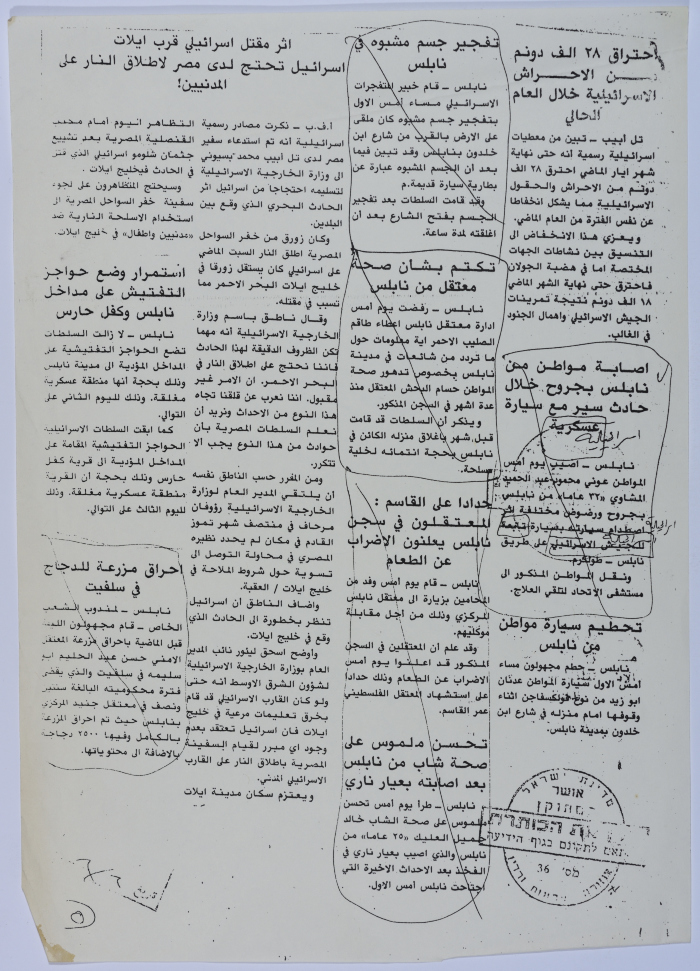 احتراق ٢٨ الف دونم
من الاحراش
الاسرائيلية خلال العام
الحالي
تل أبيب – تبين من معطيات
اسرائيلية رسمية انه حتى نهاية
شهر ايار الماضي احترق ٢٨ الف
دونم من الاحراش والحقول
الاسرائيلية مما يشكل انخفاضا
عن نفس الفترة من العام الماضي.
ويعزى هذا الانخفاض الى
التنسيق بين نشاطات الجهات
المختصة اما في هضبة الجولان
فاحترق حتى نهاية الشهر الماضي
١٨ الف دونم نتيجة تمرينات
الجيش الاسرائيلي واهمال الجنود
في الغالب.
اصابة مواطن من
نابلس بجروح خلال
حادث سير مع سيارة
عسكرية
اسرائيلية
نابلس – اصيب يوم أمس
المواطن عوني محمود عبد الحميد
المشاوي «٣٢ عاما» من نابلس
بجروح ورضوض مختلفة اثر
اصطدام سيارته بسيارة تابعة
للجيش الاسرائيلي على طريق
نابلس – طولكرم.
ونقل المواطن المذكور الى
مستشفى الاتحاد لتلقي العلاج.
تحطيم سيارة مواطن
من نابلس
نابلس – حطم مجهولون مساء
أمس الاول سيارة المواطن عدنان
ابو زيد من نوع فولكسفاجن اثناء
وقوفها امام منزله في شارع ابن
خلدون بمدينة نابلس.
تفجير جسم مشبوه في
نابلس
نابلس – قام خبير المتفجرات
الاسرائيلي مساء أمس الاول
بتفجير جسم مشبوه كان ملقى
على الارض بالقرب من شارع ابن
خلدون بنابلس وقد تبين فيما
بعد أن الجسم المشبوه عبارة عن
بطارية سيارة قديمة.
وقد قامت السلطات بعد تفجير
الجسم بفتح الشارع بعد أن
اغلقته لمدة ساعة.
تكتم بشأن صحة
معتقل من نابلس
نابلس – رفضت يوم امس
ادارة معتقل نابلس اعطاء طاقم
الصليب الاحمر اية معلومات حول
ما تردد من شائعات في مدينة
نابلس بخصوص تدهور صحة
المواطن حسام البخش المعتقل منذ
عدة اشهر في السجن المذكور.
ويذكر أن السلطات قد قامت
قبل شهر باغلاق منزله الكائن في
نابلس بحجة انتمائه لخلية
مسلحة.
حدادا على القاسم :
المعتقلون في سجن
نابلس يعلنون الاضراب
عن الطعام
نابلس – قام يوم أمس وفد من
المحامين بزيارة الى معتقل نابلس
المركزي وذلك من أجل مقابلة
موكليهم.
وقد علم ان المعتقلين في السجن
المذكور قد اعلنوا يوم امس
الاضراب عن الطعام وذلك حدادا
على استشهاد المعتقل الفلسطيني
عمر القاسم.
تحسن ملموس على
صحة شاب من نابلس
بعد اصابته بعيار ناري
نابلس – طرأ يوم أمس تحسن
ملموس على صحة الشاب خالد
جميل العليك «٢٥ عاما» من
نابلس والذي اصيب بعيار ناري في
الفخذ بعد الاحداث الاخيرة التي
اجتاحت نابلس أمس الاول.
اثر مقتل اسرائيلي قرب ايلات
اسرائيل تحتج لدى مصر لاطلاق النار على
المدنيين!
أ.ف.ب – ذكرت مصادر رسمية
اسرائيلية انه تم استدعاء سفير
مصر لدى تل ابيب محمد بسيوني
الى وزارة الخارجية الاسرائيلية
لتسليمه احتجاجا من اسرائيل اثر
الحادث البحري الذي وقع بين
البلدين.
وكان زورق من خفر السواحل
المصرية اطلق النار السبت الماضي
على اسرائيلي كان يستقل زورقا في
خليج ايلات البحر الاحمر مما
تسبب في مقتله.
وقال ناطق باسم وزارة
الخارجية الاسرائيلية انه مهما
تكن الظروف الدقيقة لهذا الحادث
فاننا نحتج على اطلاق النار في
البحر الاحمر. ان الامر غير
مقبول. اننا نعرب عن قلقنا تجاه
هذا النوع من الاحداث ونريد أن
نعلم السلطات المصرية بأن
حوادث من هذا النوع يجب الا
تتكرر.
ومن المقرر حسب الناطق نفسه
أن يلتقي المدير العام لوزارة
الخارجية الاسرائيلية رؤوفان
مرحاف في منتصف شهر تموز
القادم في مكان لم يحدد نظيره
المصري في محاولة التوصل الى
تسوية حول شروط الملاحة في
خليج ايلات / العقبة.
واضاف الناطق أن اسرائيل
تنظر بخطورة الى الحادث الذي
وقع في خليج ايلات.
وأوضح اسحق ليئور نائب المدير
العام بوزارة الخارجية الاسرائيلية
لشؤون الشرق الاوسط انه حتى
ولو كان القارب الاسرائيلي قد قام
بخرق تعليمات مرعية في خليج
ايلات فان اسرائيل تعتقد بعدم
وجود اي مبرر لقيام السفينة
المصرية باطلاق النار على القارب
الاسرائيلي المدني.
ويعتزم سكان مدينة ايلات
التظاهر اليوم امام مكتب
القنصلية المصرية بعد تشييع
جثمان شلومو اسرائيلي الذي قتل
في الحادث فيخليج ايلات.
وسيحتج المتظاهرون على لجوء
سفينة خفر السواحل المصرية الى
استخدام الاسلحة النارية ضد
«مدنيين واطفال» في خليج ايلات.
استمرار وضع حواجز
التفتيش على مداخل
نابلس وكفل حارس
نابلس – لا زالت السلطات
تضع الحواجز التفتيشية عبر
المداخل المؤدية الى مدينة نابلس
وذلك بحجة أنها منطقة عسكرية
مغلقة. وذلك لليوم الثاني على
التوالي.
كما ابقت السلطات الاسرائيلية
الحواجز التفتيشية المقامة على
المداخل المؤدية الى قرية كفل
حارس وذلك بحجة أن القرية
منطقة عسكرية مغلقة. وذلك
لليوم الثالث على التوالي.
احراق مزرعة للدجاج
في سلفيت
نابلس – لمندوب الشعب
الخاص – قام مجهولون الليلة
قبل الماضية باحراق مزرعة المعتقل
الامني حسن عبد الحليم ابو
سليمه في سلفيت والذي يقضي
فترة محكوميته البالغة سنتين
ونصف في معتقل جنيد المركزي
بنابلس حيث تم احراق المزرعة
بالكامل وفيها ٢٥٠٠ دجاجة
بالاضافة الى محتوياتها.
מדינת ישראל
אושר
את הכותרת
תאם לתקינים בגוף הידיעה
מס' 36
تاريخ ٦/٦